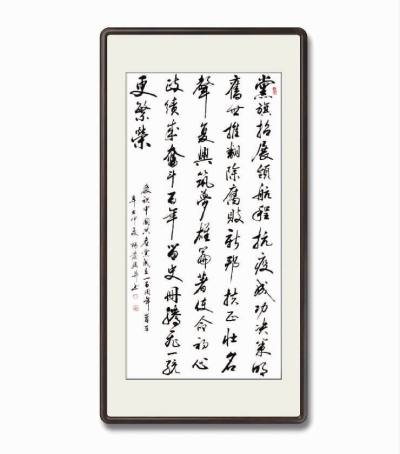 黨旗招展領航程抗疫成功決策明
舊世推翻除腐敗新邦扶正壯名
聲復興築夢雄篇著使命初心
政績成奮斗百年留史冊騰飛一統
更繁榮
慶祝中國共產黨成立一百周年
辛丑仲夏